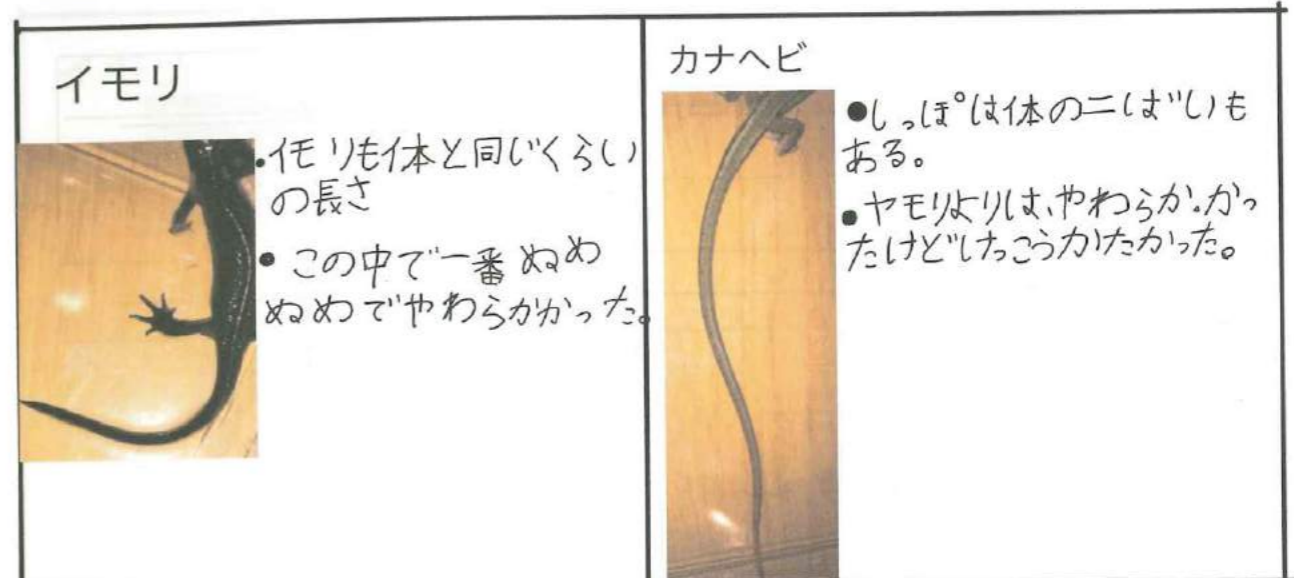 イモリ
・イモリも体と同じくらい
の長さ
● この中で一番ぬめ
ぬめでやわらかかった。
カナヘビ
●しっぽは体の二ばいも
ある。
●ヤモリよりは、やわらかかっ
たけどけっこうかたかった。